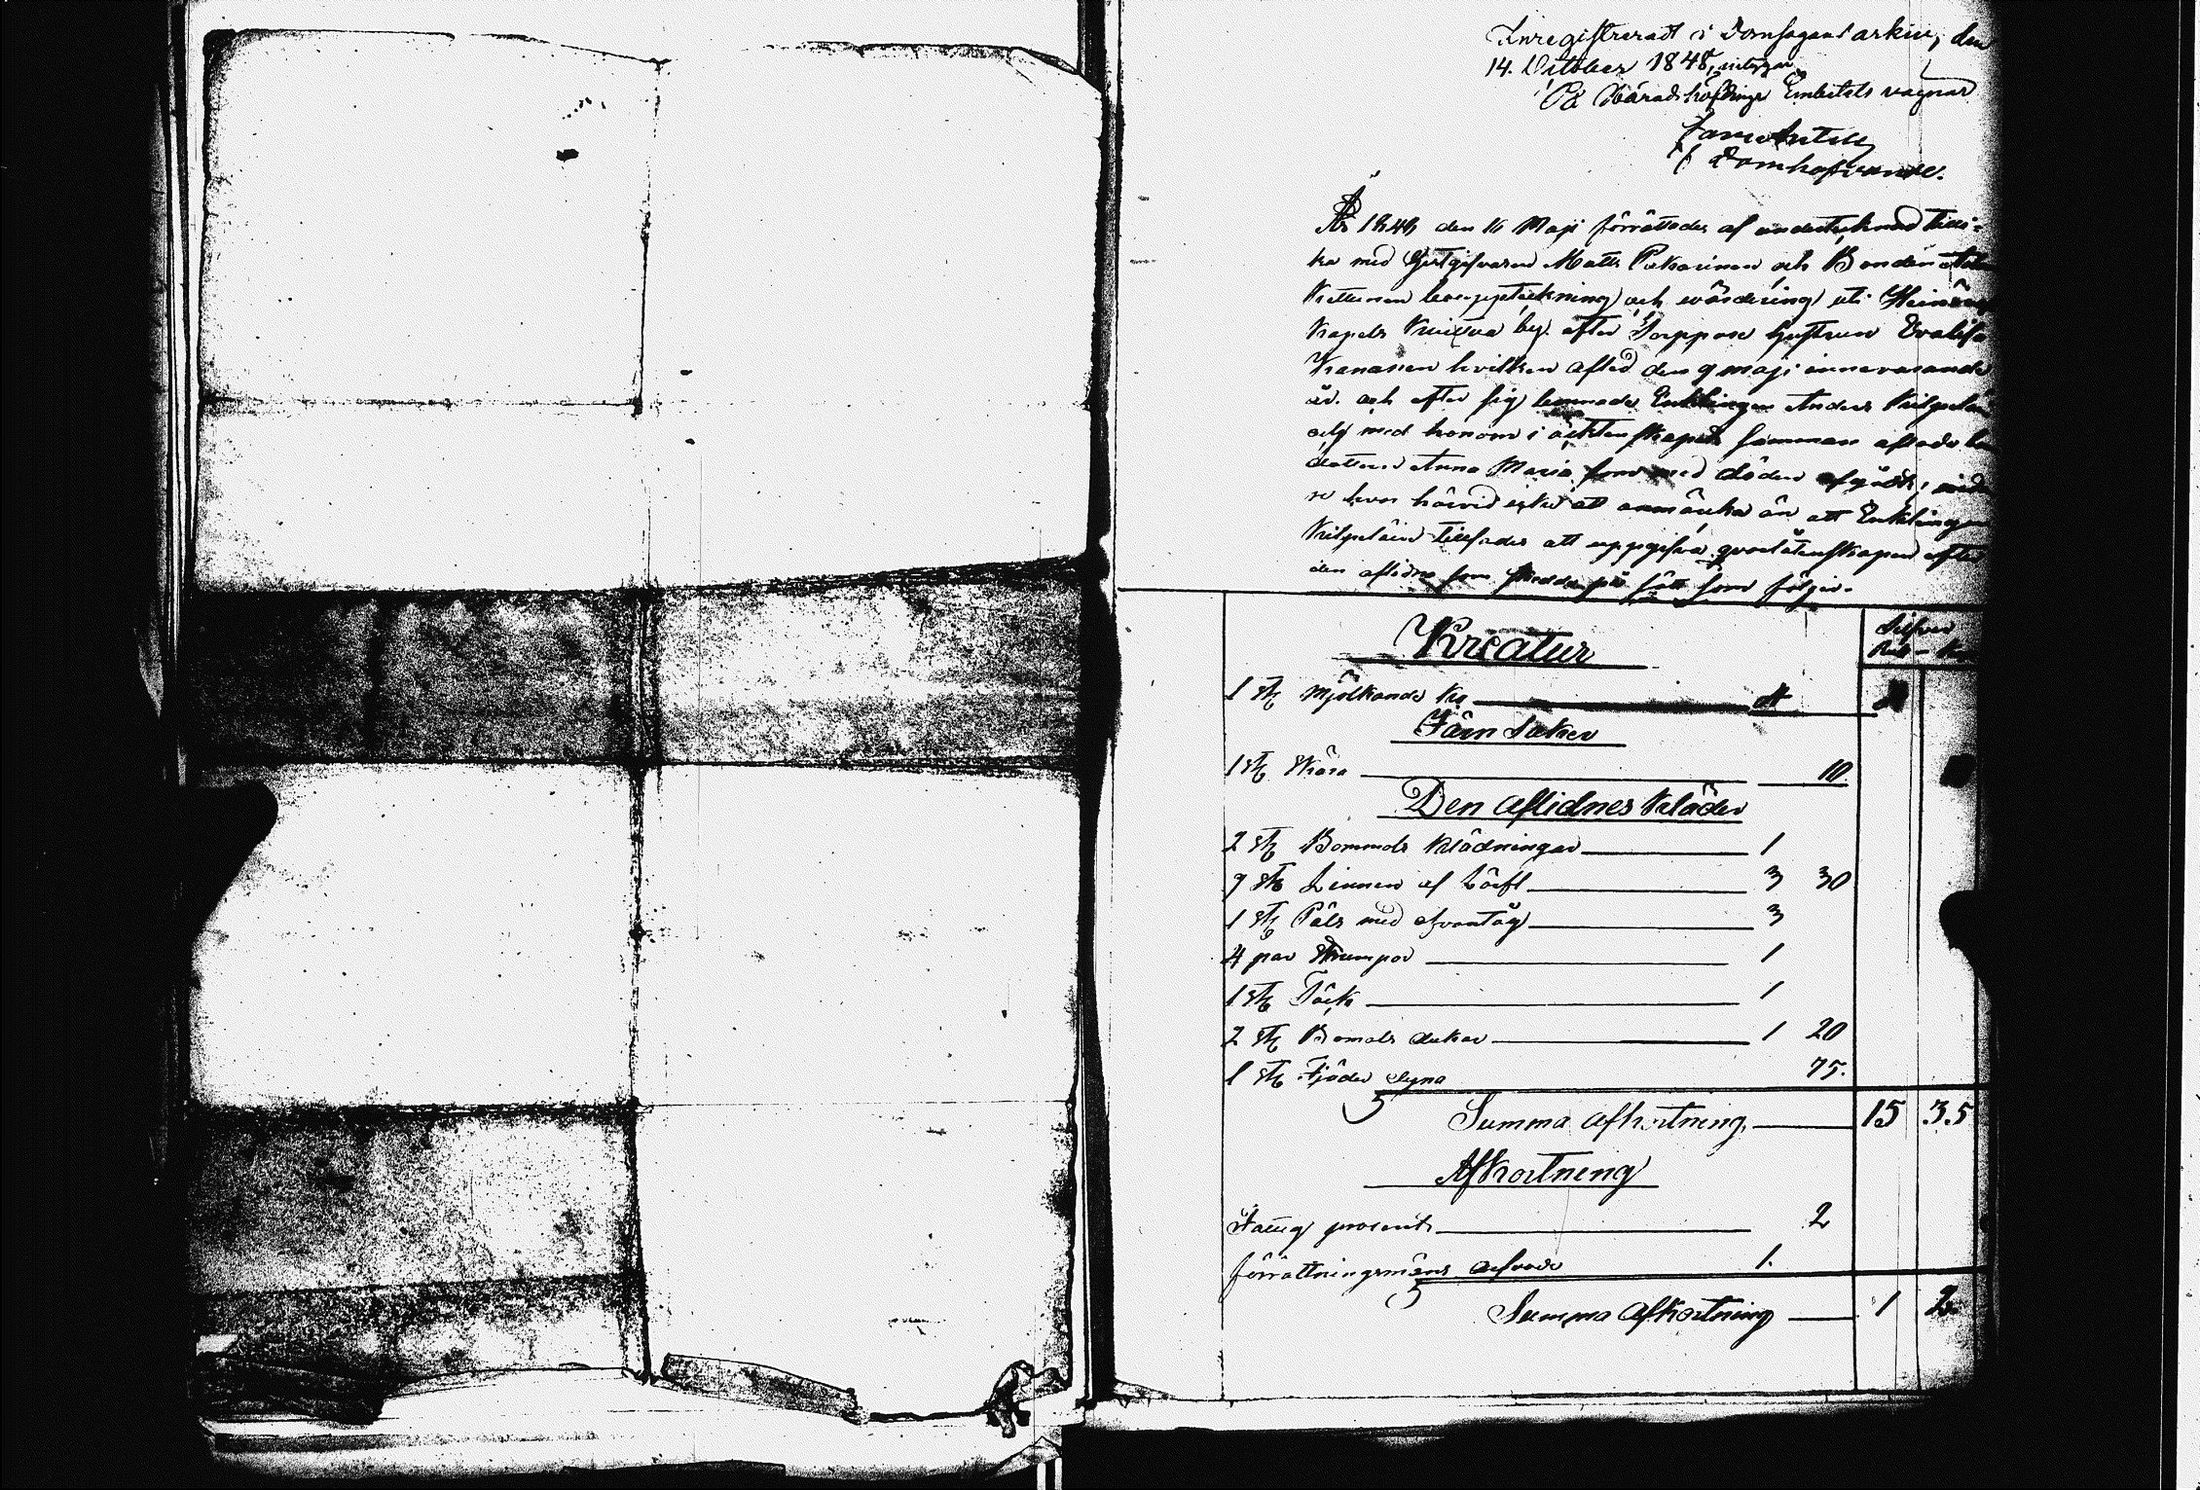 Inregistreradt i Domsagans arkiv, den
14. October 1848, intygar
På Häradshöfdinge Embetets vagnar
Domhafvande.
År 1848 den 16 Maji förrättades af undertecknad tilli-
ka med Gestgifvaren Matts Pekarinen och Bonden
Kettunen bouppteckning och värdering uti
Kapels by. efter Hustrun
Kananen hvilken afled den 9 maji innevarande
år. och efter sig lemnade Enklingen Anders
och med honom i ächtenskapet samman aflade
dottren Anna Maria som med döden afgått,
re hvar härvid icke att anmärka än att Enklingen
tillsades att uppgifva qvarlåtenskapen efter
den aflidne som skedde på sätt som följer.
Kreatur
Silfver
Rub - Kop
1 st Mjölkande Ko
Järn Saker
1 st Skära 10
Den Aflidnes Kläder
2 st Bommuls Klädningar 1
9 st Linnen af Lärft 3 30
1 st Päls med 3
4 par Strumpor 1
1 st Täck 1
2 st Bomuls dukar 1 20
1 st Fjäder dyna 75.
Summa afkortning 15 35
Afkortning
Fattig procent 2
förrättningsmäns arfvode 1.
Summa Afkortning 1 2